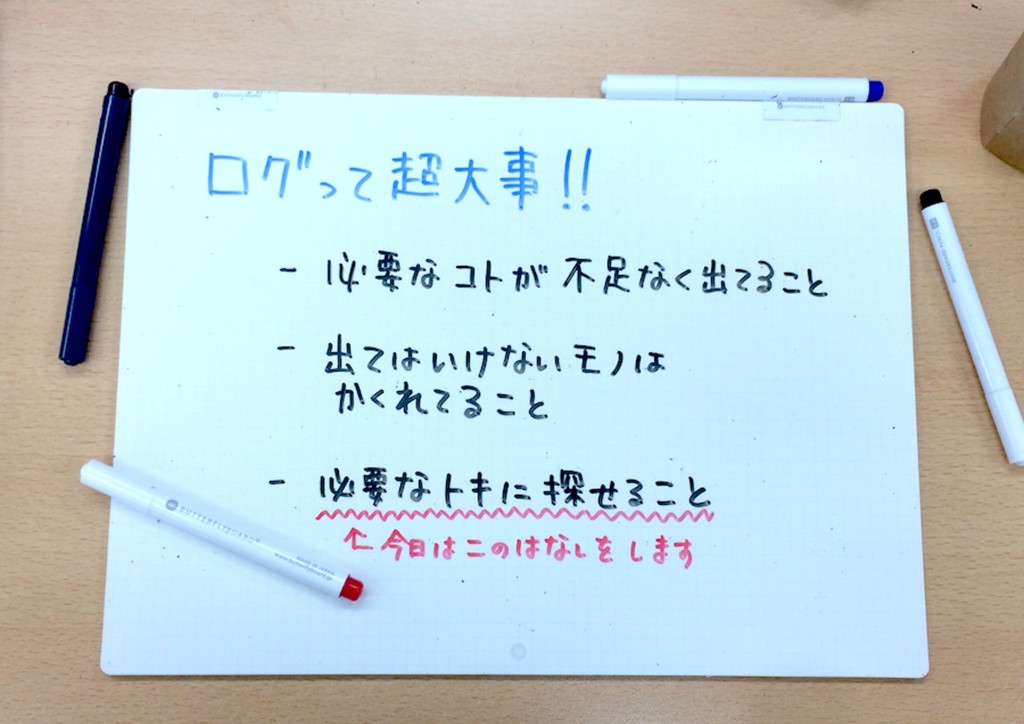 ログって超大事!!
- 必要なコトが不足なく出てること
- 出てはいけないモノは
かくれてること
- 必要なトキに探せること
↑今日はこのはなしをします
BUTTERFLYBOARD
MADE IN JAPAN